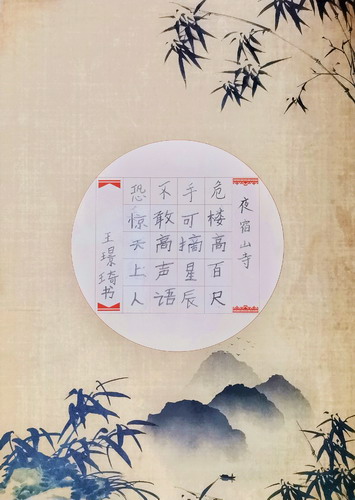 夜宿山寺
危楼高百尺
手可摘星辰
不敢高声语
恐惊天上人
王璟琦书